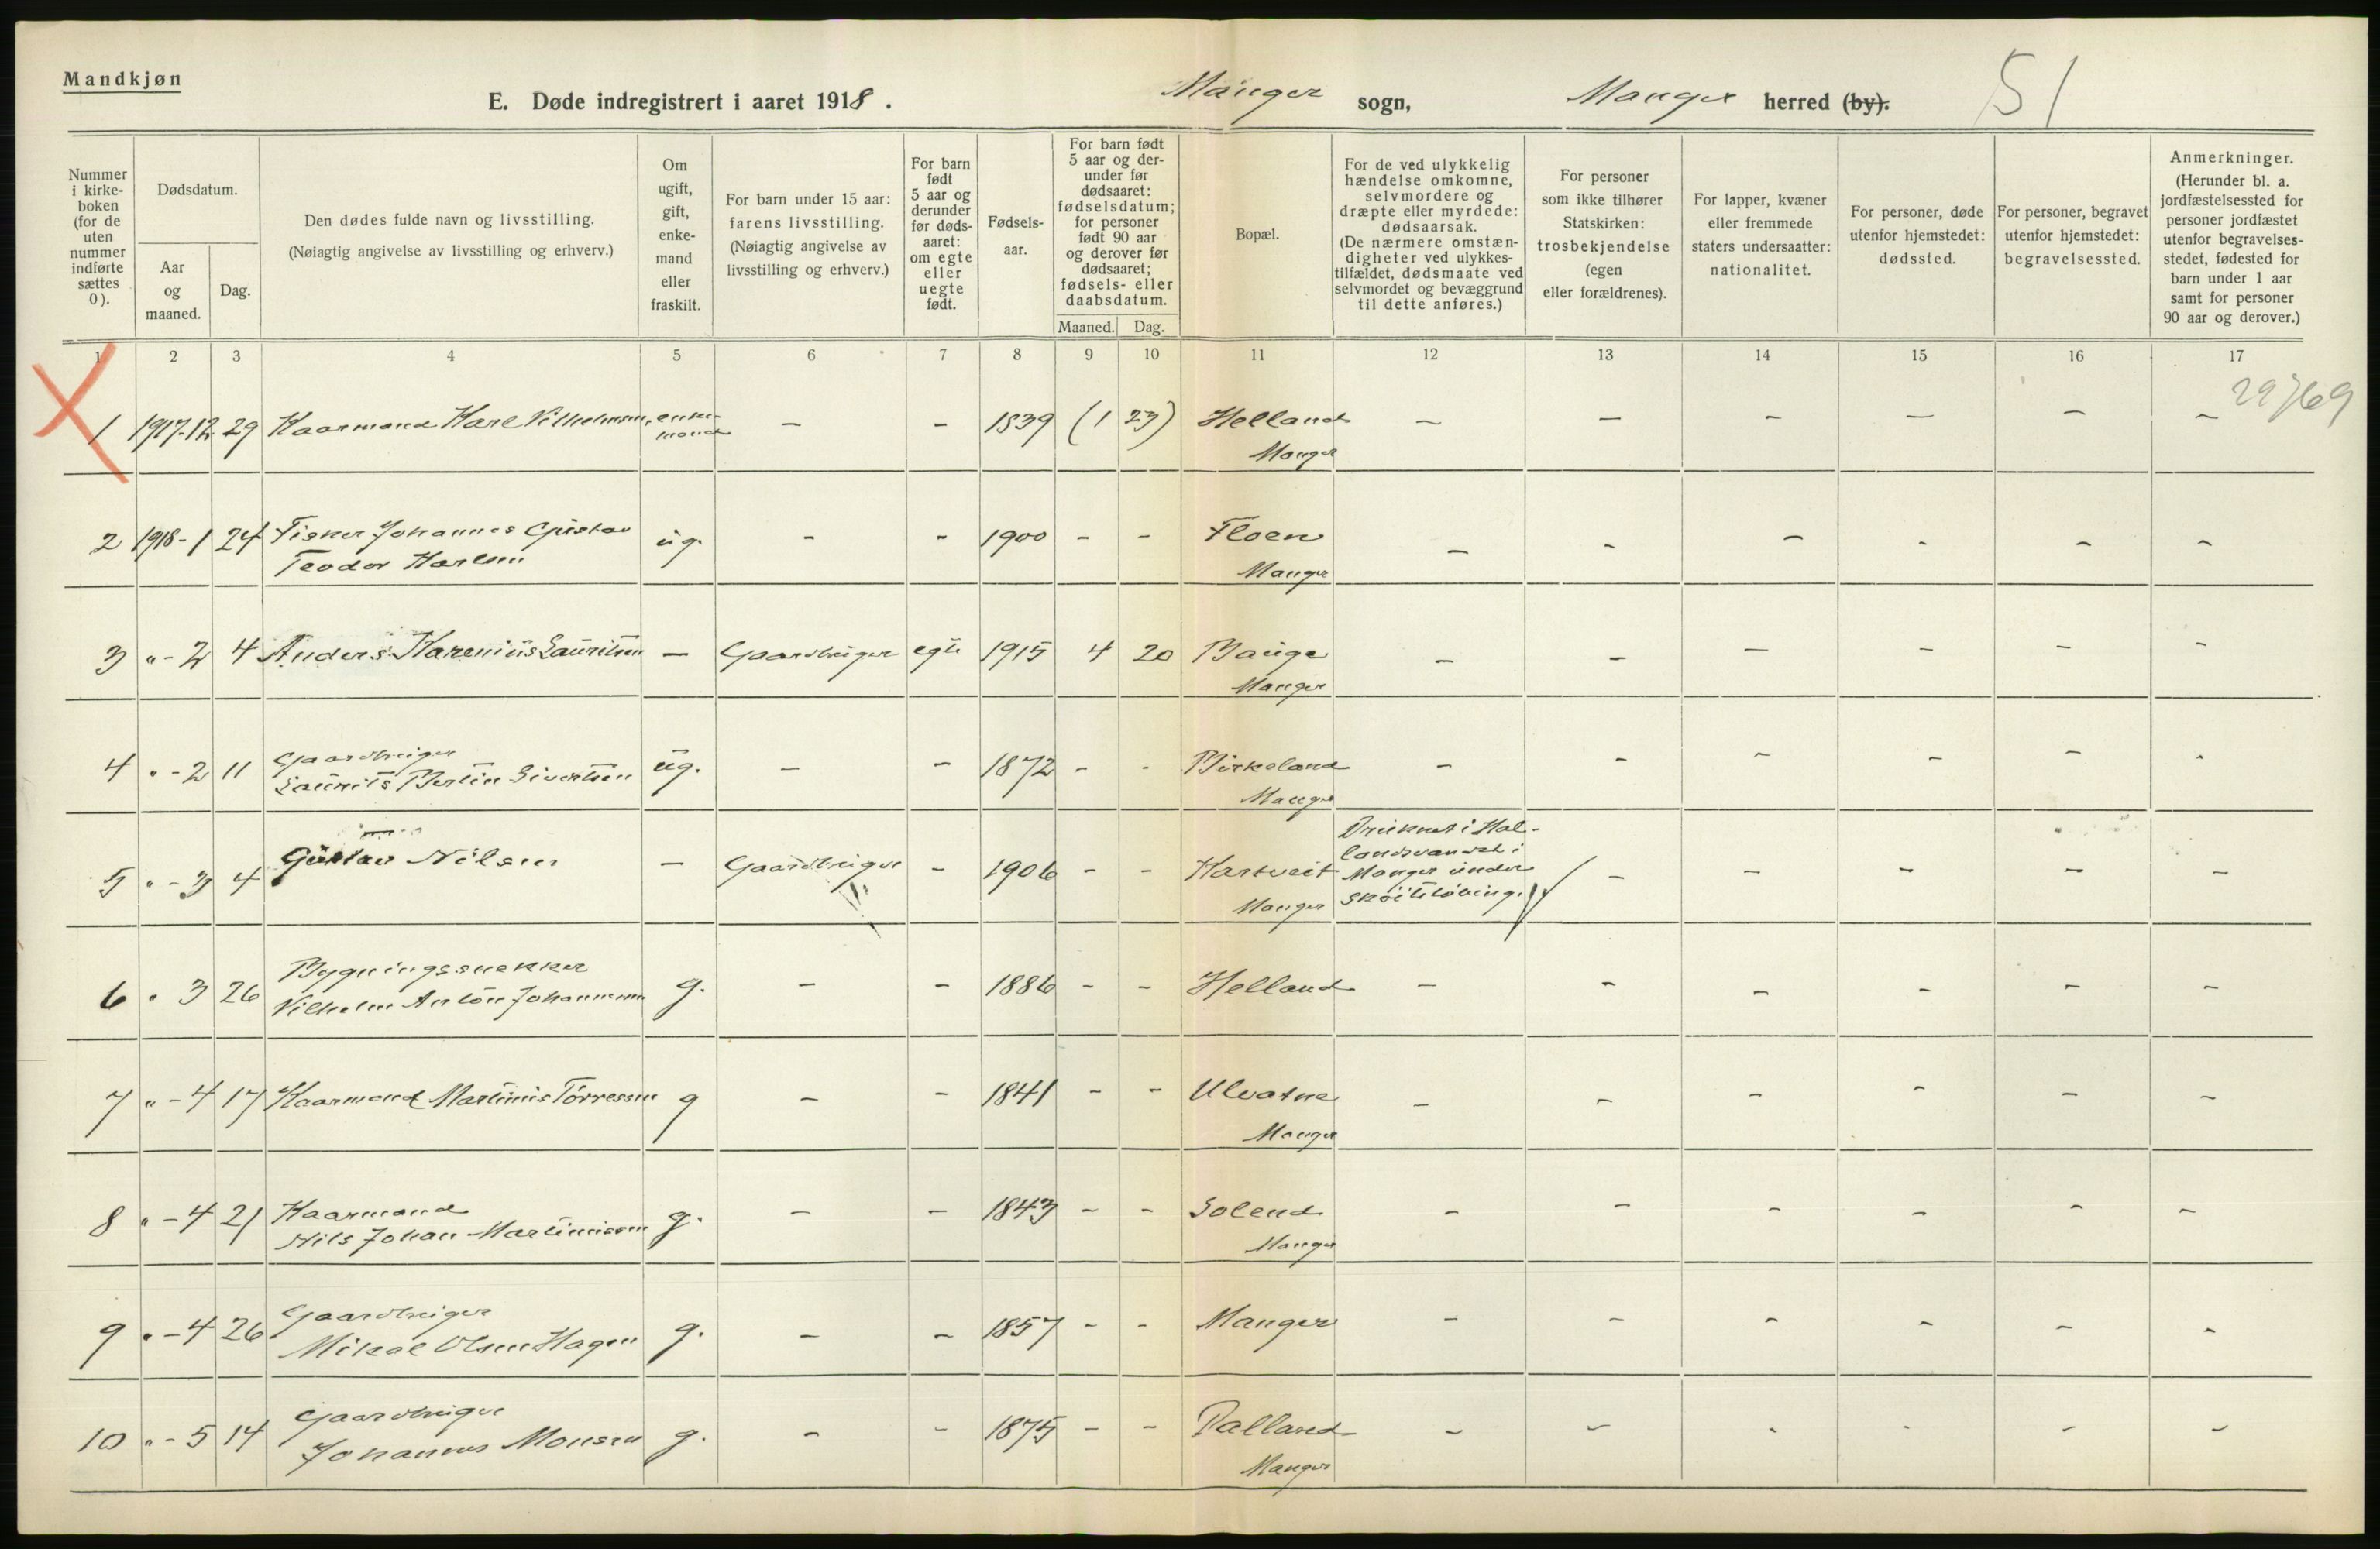 Mandkjøn
E. Døde indregistrert i aaret 1918.
Manger sogn, Manger herred (by).
51
Nummer i kirke-boken (for de uten nummer indførte sættes 0).
Dødsdatum.
Aar og maaned.
Dag.
Den dødes fulde navn og livsstilling.
(Nøiagtig angivelse av livsstilling og erhverv.)
Om ugift, gift, enke-mand eller fraskilt.
For barn under 15 aar: farens livsstilling.
(Nøiagtig angivelse av livsstilling og erhverv.)
For barn født 5 aar og derunder før døds-aaret: om egte eller uegte født.
Fødsels-aar.
For barn født 5 aar og der-under før dødsaaret: fødselsdatum; for personer født 90 aar og derover før dødsaaret; fødsels- eller daabsdatum.
Maaned. Dag.
Bopæl.
For de ved ulykkelig hændelse omkomne, selvmordere og dræpte eller myrdede: dødsaarsak.
(De nærmere omstæn-digheter ved ulykkes-tilfældet, dødsmaate ved selvmordet og bevæggrund til dette anføres.)
For personer som ikke tilhører Statskirken: trosbekjendelse (egen eller forældrenes).
For lapper, kvæner eller fremmede staters undersaatter: nationalitet.
For personer, døde utenfor hjemstedet: dødssted.
For personer, begravet utenfor hjemstedet: begravelsessted.
Anmerkninger.
(Herunder bl. a. jordfæstelsessted for personer jordfæstet utenfor begravelses-stedet, fødested for barn under 1 aar samt for personer 90 aar og derover.)
1 2 3 4 5 6 7 8 9 10 11 12 13 14 15 16 17
29769
1 1917-12 29 Kaarmand Karl Vilhelmsen, enke-mand – – 1839 (1 23) Helland Manger – – – – – –
2 1918-1 24 Fisker Johannes Gustav Teodor Karlsen ug. – – 1900 – – Floen Manger – – – – – –
3 "-2 4 Anders Karenius Lauritsen – Gaardbruger egte 1915 4 20 Bauge Manger – – – – – –
4 "-2 11 Gaardbruger Laurits Bertin Sivertsen ug. – – 1872 – – Birkeland Manger – – – – – –
5 "-3 4 Gustav Nilsen – Gaardbruger – 1906 – – Kartveit Manger Druknet i Hal-landsvandet i Manger under skøiteløbing. – – – – –
6 " 3 26 Bygningssnekker Vilhelm Anton Johannessen g. – – 1886 – – Helland – – – – – –
7 "-4 17 Kaarmand Martinus Torressen g – – 1841 – – Ulvatne Manger – – – – – –
8 "-4 21 Kaarmand Nils Johan Martinussen g. – – 1843 – – Solend Manger – – – – – –
9 "-4 26 Gaardbruger Mikal Olsen Hagen g. – – 1857 – – Manger – – – – – –
10 "-5 14 Gaardbruger Johannes Monsen g. – – 1875 – – Palland Manger – – – – – –